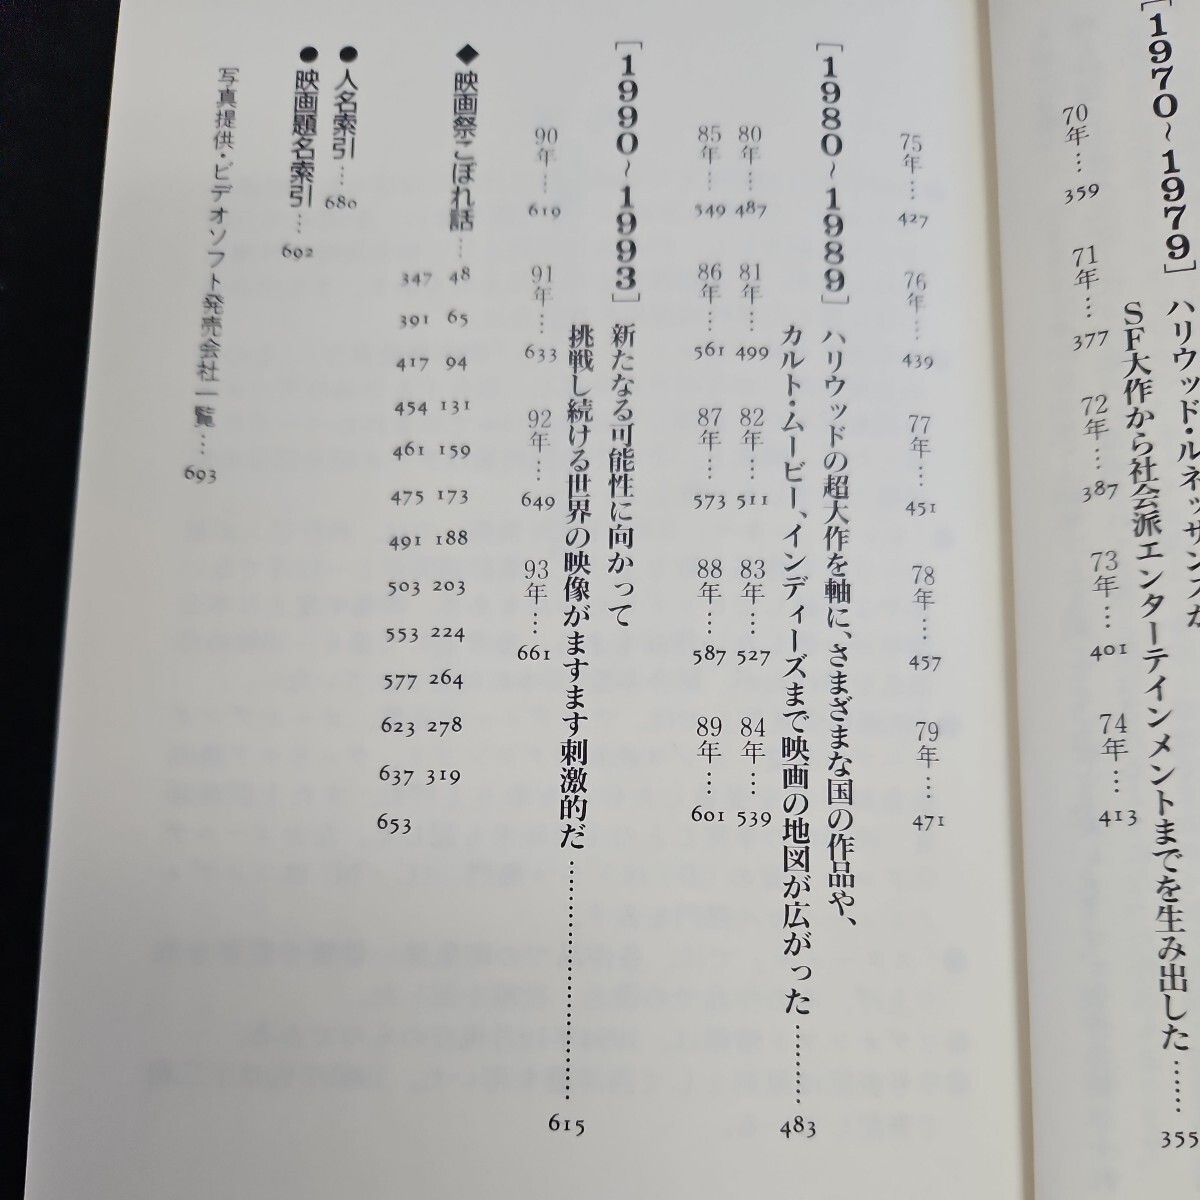 [1970~1979]
ハリウッド・ルネッサンスが
SF大作から社会派エンターテインメントまでを生み出した……355
70年…359
71年…377
72年…387
73年…401
74年…413
75年…427
76年…439
77年…451
78年…457
79年…471
[1980~1989]
ハリウッドの超大作を軸に、さまざまな国の作品や、
カルト・ムービー、インディーズまで映画の地図が広がった………483
80年…487
81年…499
82年…511
83年…527
84年…539
85年…549
86年…561
87年…573
88年…587
89年…601
[1990~1993]
新たなる可能性に向かって
挑戦し続ける世界の映像がますます刺激的だ……………………615
90年…619
91年…633
92年…649
93年…661
◆映画祭こぼれ話…
48 65 94 131 159 173 188 203 224 264 278 319
347 391 417 454 461 475 491 503 553 577 623 637 653
●人名索引…680
●映画題名索引…692
[写真提供・ビデオソフト発売会社一覧…693